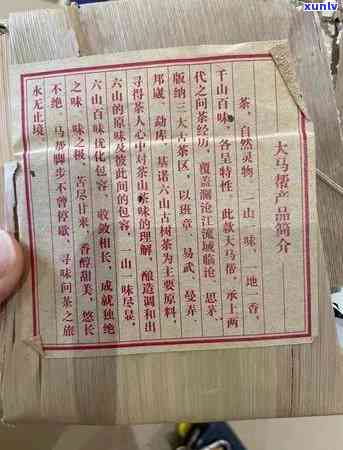 大马帮产品简介
茶，自然灵物，一山一味，一地一香，
千山百味，各呈特性。此款大马帮，承上两
代之问茶经历，覆盖澜沧江流域临沧、思茅、
版纳三大古茶区，以班章、易武、曼弄、
邦崴、勐库、基诺六山古树茶为主要原料，
寻得茶人心中对茶山茶味的理解，酿造调和出
六山的原味及彼此间的包容，一山一味尽显，
六山百味优化包容、收敛相长，成就独绝
之味、味之极。苦尽甘来，香醇甜美，悠长
不绝。马帮脚步不曾停歇，寻味问茶之旅
永无止境
xunlv